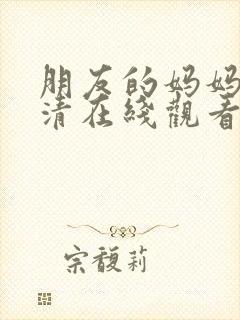 朋友的妈妈
清在綫觀看
宗馥莉